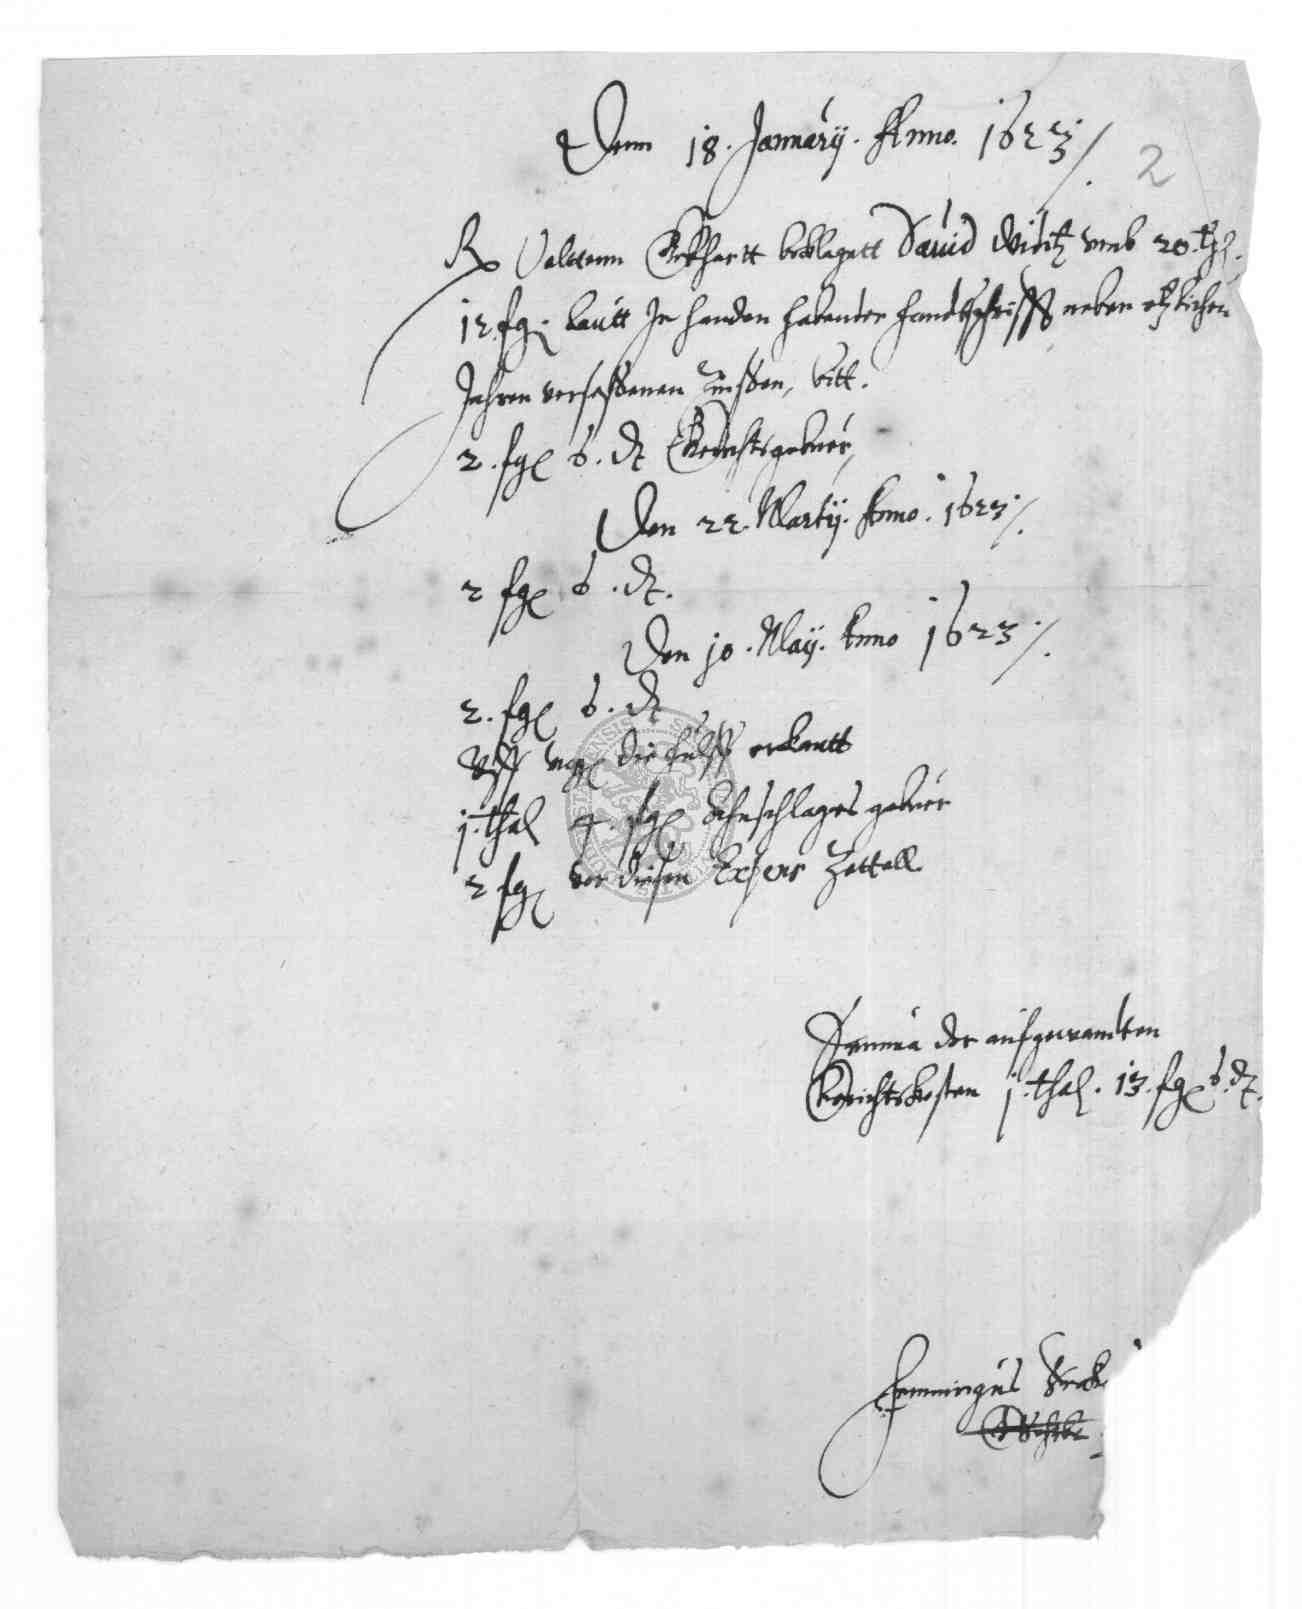 Denn 18. Januarÿ. Anno. 1623 /.
2
Valttenn Eckhartt beklagett David Wiritz umb 20. thl.
12. sgr. lautt In handen habender handtschrifft neben etzlichen
Jahren versessenen Zinssen, bitt.
2. sgr 6. d Gerichtsgebuer,
Den 22. Martÿ. Anno. 1623 /.
2 sgr 6. d.
Den 10. Maÿ. Anno 1623 /.
2. sgr 6. d
Uff die hülff erkantt
1. thal 4. sgr gebuer
2 sgr vor diesen Expens Zettell
Summa der aufgewandten
Gerichtskosten 1. thal. 13. sgr 6. d.
Henningus